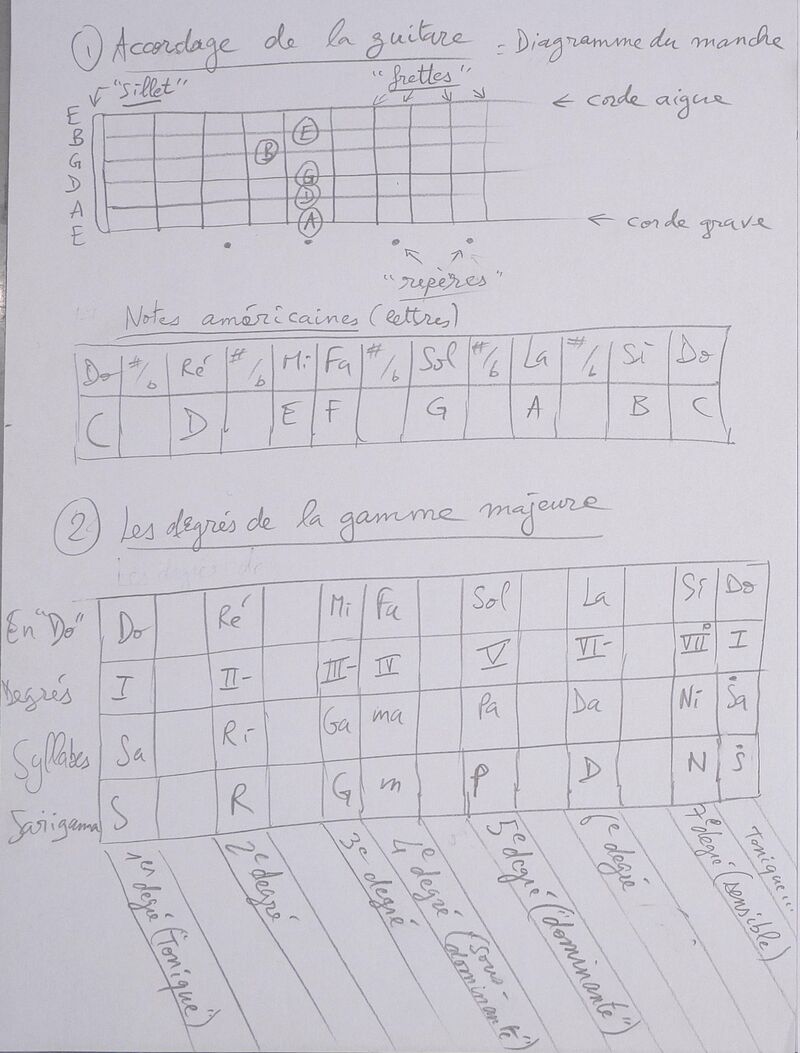 ① Accordage de la guitare = Diagramme du manche
"Sillet" "frettes"
E ← corde aigue
B E
G B
D G
A D
E A ← corde grave
"repères"
Notes américaines (lettres)
Do #/b Ré #/b Mi Fa #/b Sol #/b La #/b Si Do
C D E F G A B C
② Les degrés de la gamme majeure
En "Do" Do Ré Mi Fa Sol La Si Do
Degrés I II- III- IV V VI- VII I
Syllabes Sa Ri Ga ma Pa Da Ni Ṡa
Sarigama S R G m P D N Ṡ
1er degré ("Tonique")
2e degré
3e degré
4e degré (sous-dominante")
5e degré ("dominante")
6e degré
7e degré (sensible)
Tonique...